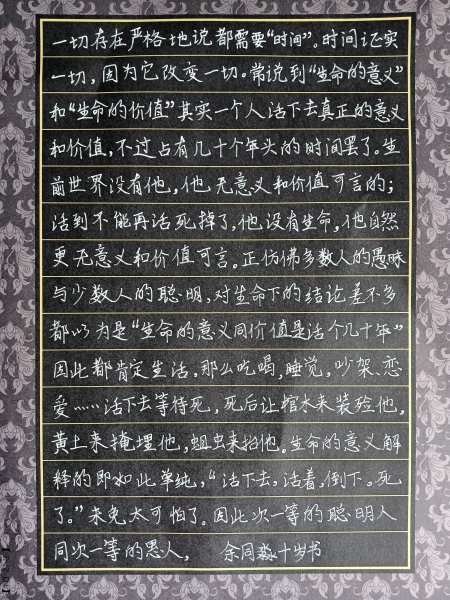 一切存在严格地说都需要“时间”。时间证实
一切，因为它改变一切。常说到“生命的意义”
和“生命的价值”其实一个人活下去真正的意义
和价值，不过占有几十个年头的时间罢了。生
前世界没有他，他无意义和价值可言的；
活到不能再活死掉了，他没有生命，他自然
更无意义和价值可言。正仿佛多数人的愚昧
与少数人的聪明，对生命下的结论差不多
都以为是“生命的意义同价值是活个几十年”
因此都肯定生活，那么吃喝，睡觉，吵架、恋
爱……活下去等待死，死后让棺木来装殓他，
黄土来掩埋他，蛆虫来掐他。生命的意义解
释的即如此单纯，“活下去，活着，倒下。死
了。”未免太可怕了。因此次一等的聪明人
同次一等的愚人， 余同淼十岁书